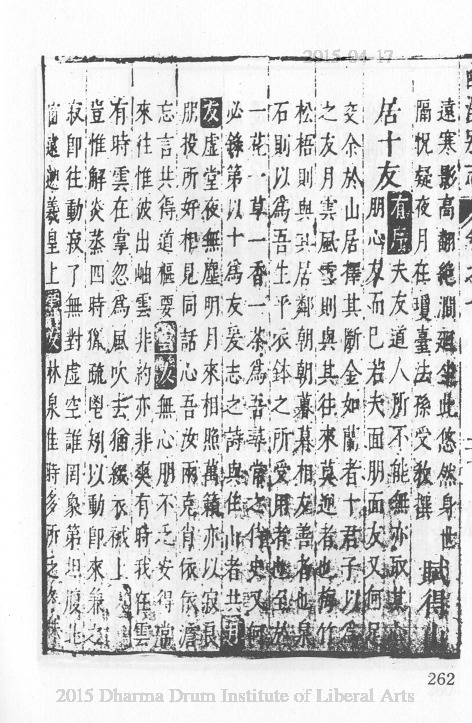 2015-04-17
遠寒影高翻絕澗迴坐此悠然身世
隔怳疑夜月在瓊臺法孫受教撰 賦得山
居十友 有序 夫友道人所不能無亦取其
朋心友而已若夫面朋面友又何足
交余於山居擇其斷金如蘭者十君子以為
之友月雲風雪則與其往來莫迎者也梅竹
松梧則與其居鄰朝朝暮暮相友善者也泉
石則以為吾生平衣鉢之所受用者也至於
一花一草一香一茶為吾尋常之作史又何
必錄第以十為友爰志之詩與住山者共 月
友 虛堂夜無塵明月來相照萬籟亦以寂良
朋投所好相見同話心吾汝兩克肖依依澹
忘言共得道樞要 雲友 無心朋不乏安得常
來往惟彼出岫雲非約亦非爽有時我在雲
有時雲在掌忽為風吹去猶綴衣裓上
豈惟解炎蒸四時徯疏鬯矧以動即來兼之
寂即往動寂了無對虛空誰罔象第坦腹北
窗遠邈羲皇上 雪友 林泉隹時多所之
262
2015 Dharma Drum Institute of Liberal Arts